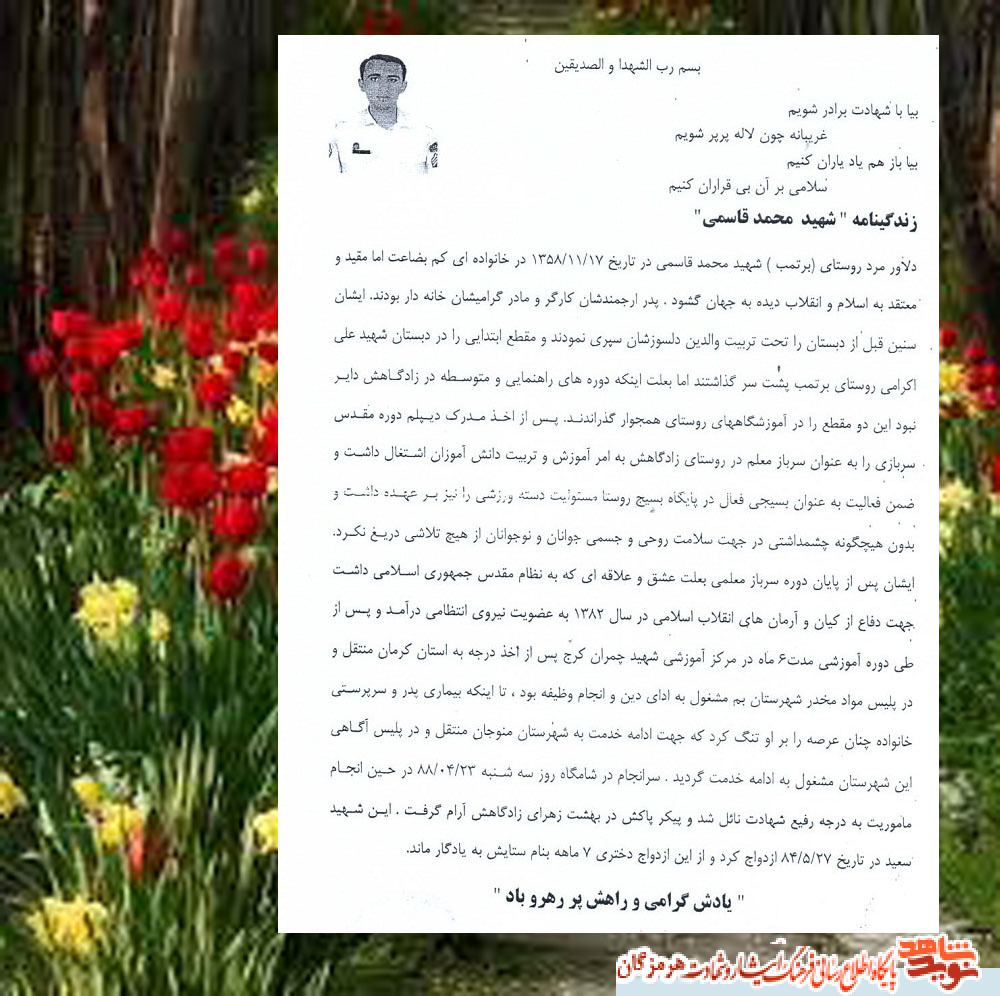 بسم رب الشهدا و الصدیقین
بیا با شهادت برادر شویم
غریبانه چون لاله پرپر شویم
بیا باز هم یاد یاران کنیم
سلامی بر آن بی قراران کنیم
زندگینامه " شهید محمد قاسمی"
دلاور مرد روستای (برتمب ) شهید محمد قاسمی در تاریخ ۱۳۵۸/۱۱/۱۷ در خانواده ای کم بضاعت اما مقید و
معتقد به اسلام و انقلاب دیده به جهان گشود . پدر ارجمندشان کارگر و مادر گرامیشان خانه دار بودند. ایشان
سنین قبل از دبستان را تحت تربیت والدین دلسوزشان سپری نمودند و مقطع ابتدایی را در دبستان شهید علی
اکرامی روستای برتمب پشت سر گذاشتند اما بعلت اینکه دوره های راهنمایی و متوسطه در زادگاهش دایر
نبود این دو مقطع را در آموزشگاههای روستای همجوار گذراندند. پس از اخذ مدرک دیپلم دوره مقدس
سربازی را به عنوان سرباز معلم در روستای زادگاهش به امر آموزش و تربیت دانش آموزان اشتغال داشت و
ضمن فعالیت به عنوان بسیجی فعال در پایگاه بسیج روستا مسئولیت دسته ورزشی را نیز بر عهده داشت و
بدون هیچگونه چشمداشتی در جهت سلامت روحی و جسمی جوانان و نوجوانان از هیچ تلاشی دریغ نکرد.
ایشان پس از پایان دوره سرباز معلمی بعلت عشق و علاقه ای که به نظام مقدس جمهوری اسلامی داشت
جهت دفاع از کیان و آرمان های انقلاب اسلامی در سال ۱۳۸۲ به عضویت نیروی انتظامی درآمد و پس از
طی دوره آموزشی مدت۶ ماه در مرکز آموزشی شهید چمران کرج پس از أخذ درجه به استان کرمان منتقل و
در پلیس مواد مخدر شهرستان بم مشغول به ادای دین و انجام وظیفه بود ، تا اینکه بیماری پدر و سرپرستی
خانواده چنان عرصه را بر او تنگ کرد که جهت ادامه خدمت به شهرستان منوجان منتقل و در پلیس آگاهی
این شهرستان مشغول به ادامه خدمت گردید . سرانجام در شامگاه روز سه شنبه ۸۸/۰۴/۲۳ در حین انجام
ماموریت به درجه رفیع شهادت نائل شد و پیکر پاکش در بهشت زهرای زادگاهش آرام گرفت . این شهید
سعید در تاریخ ۸۴/۵/۲۷ ازدواج کرد و از این ازدواج دختری ۷ ماهه بنام ستایش به یادگار ماند.
" یادش گرامی و راهش پر رهرو باد "
نوید شاهد پایگاه اطلاع رسانی فرهنگ ایثار و شهادت هرمزگان